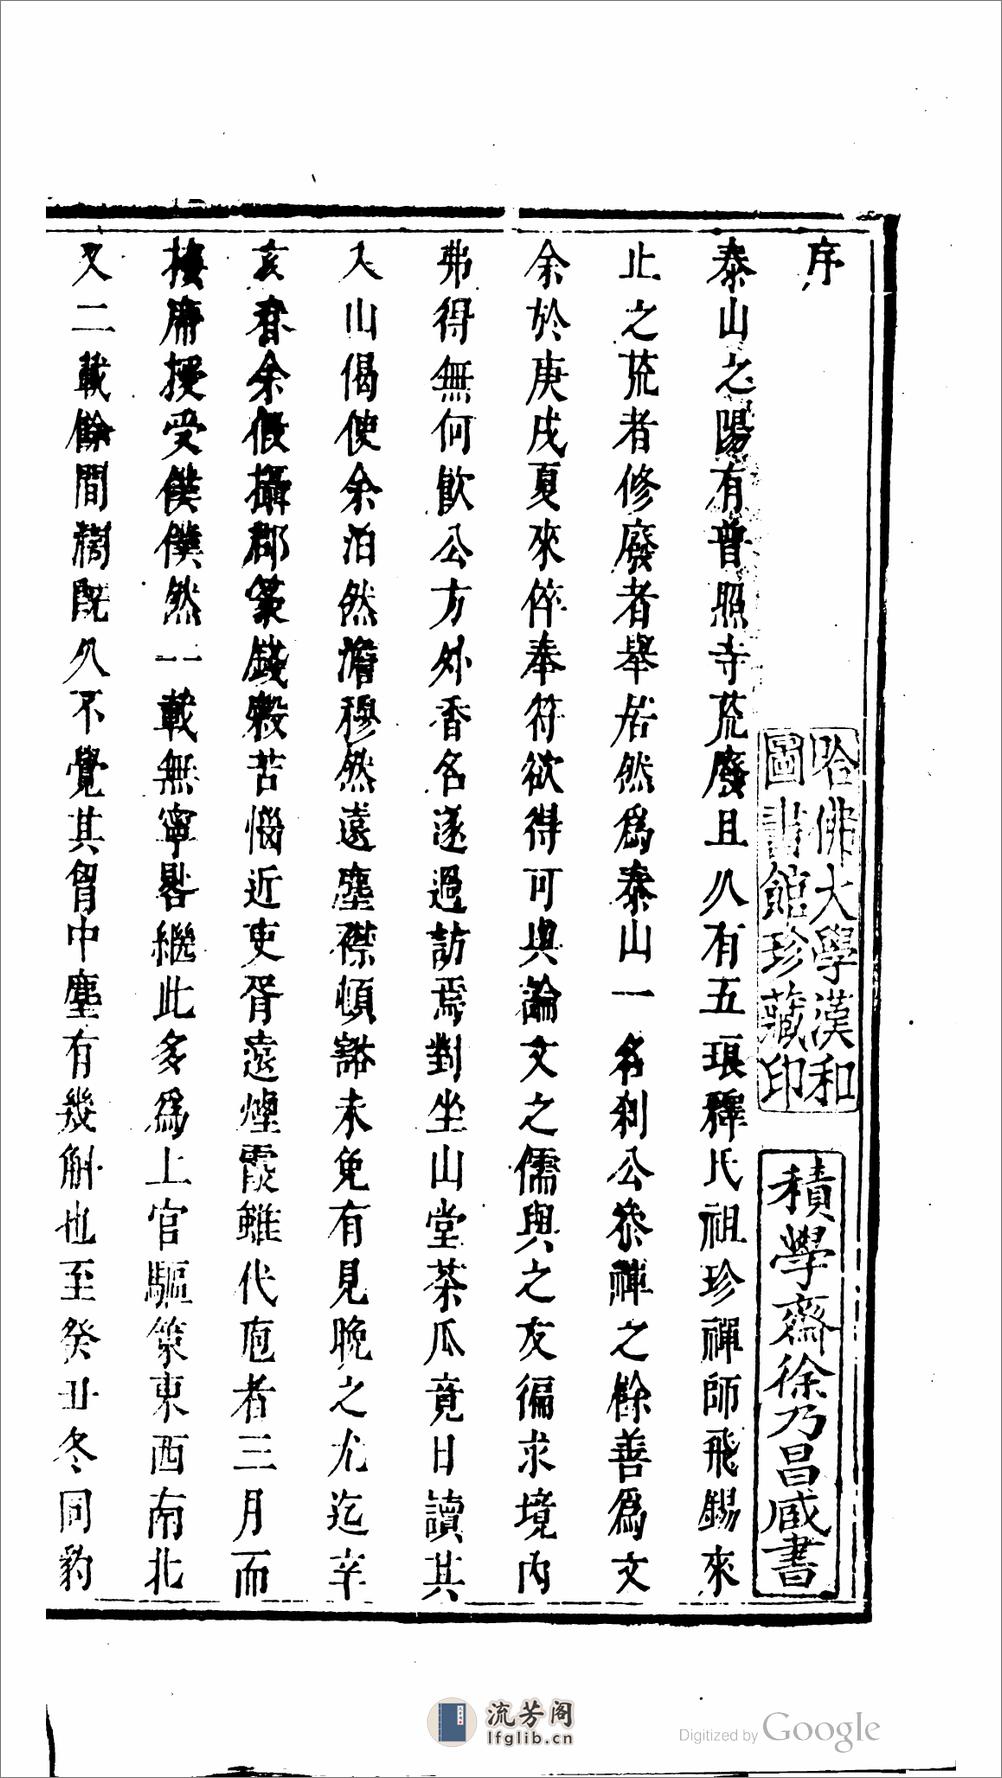 序
泰山之陽有普照寺荒廢且久有五琅釋氏祖珍禪師飛錫來
止之荒者修廢者舉居然爲泰山一名刹公叅禪之餘善爲文
余於庚戌夏來倅奉符欲得可與論文之儒與之友徧求境内
弗得無何飲公方外香名遂過訪焉對坐山堂茶瓜竟日讀其
入山偈使余泊然澹穆然遠塵襟頓豁未免有見晚之尤迄辛
亥春余假攝郡篆錢穀苦惱近吏胥遠煙霞雖代庖者三月而
接庸授受僕僕然一載無寧晷繼此多爲上官驅策東西南北
又二載餘間濶既久不覺其胷中塵有幾斛也至癸丑冬同豹
哈佛大學漢和
圖書館珍藏印
積學齋徐乃昌藏書
流芳阁
lfglib.cn
Digitized by Google